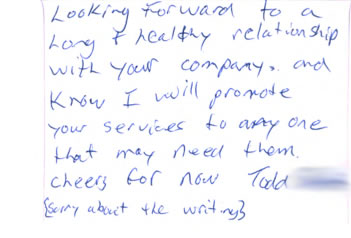 Looking forward to a
long & healthy relationship
with your company. and
know I will promote
your services to any one
that may need them.
cheers for now Todd
{sorry about the writing}